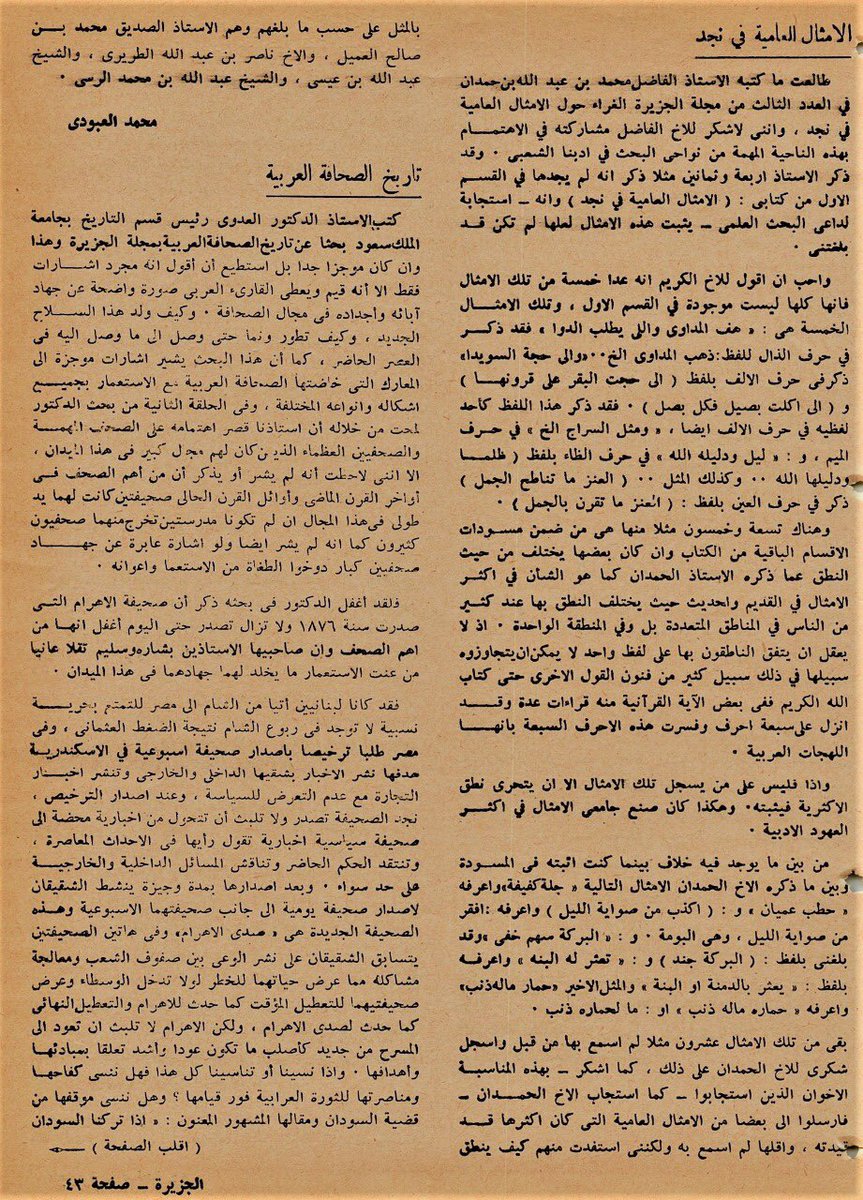 الامثال العامية في نجد
طالعت ما كتبه الاستاذ الفاضل محمد بن عبد الله بن حمدان
في العدد الثالث من مجلة الجزيرة الغراء حول الامثال العامية
في نجد ، وانني لاشكر للاخ الفاضل مشاركته في الاهتمام
بهذه الناحية المهمة من نواحي البحث في ادبنا الشعبي . وقد
ذكر الاستاذ اربعة وثمانين مثلا ذكر انه لم يجدها في القسم
الاول من كتابي : ( الامثال العامية في نجد ) وانه ـ استجابة
لداعي البحث العلمي ـ يثبت هذه الامثال لعلها لم تكن قد
بلغتني .
واحب ان اقول للاخ الكريم انه عدا خمسة من تلك الامثال
فانها كلها ليست موجودة في القسم الاول ، وتلك الامثال
الخمسة هي : « هف المداوى واللي يطلب الدوا » فقد ذكر
في حرف الذال للفظ : ذهب المداوى الخ .. «والى حجة السويدا»
ذكر في حرف الالف بلفظ ( الى حجت البقر على قرونها )
و ( الى اكلت بصيل فكل بصل ) . فقد ذكر هذا اللفظ كأحد
لفظيه في حرف الالف ايضا ، « ومثل السراج الخ » في حرف
الميم ، و : « ليل ودليله الله » في حرف الظاء بلفظ ( ظلما
ودليلها الله .. وكذلك المثل .. ( العنز ما تناطح الجمل )
ذكر في حرف العين بلفظ : ( العنز ما تقرن بالجمل ) .
وهناك تسعة وخمسون مثلا منها هي من ضمن مسودات
الاقسام الباقية من الكتاب وان كان بعضها يختلف من حيث
النطق عما ذكره الاستاذ الحمدان كما هو الشأن في اكثر
الامثال في القديم والحديث حيث يختلف النطق بها عند كثير
من الناس في المناطق المتعددة بل وفي المنطقة الواحدة . اذ لا
يعقل ان يتفق الناطقون بها على لفظ واحد لا يمكن ان يتجاوزوه
سبيلها في ذلك سبيل كثير من فنون القول الاخرى حتى كتاب
الله الكريم ففي بعض الآية القرآنية منه قراءات عدة وقد
انزل على سبعة احرف وفسرت هذه الاحرف السبعة بانها
اللهجات العربية .
واذا فليس على من يسجل تلك الامثال الا ان يتحرى نطق
الاكثرية فيثبته . وهكذا كان صنع جامعي الامثال في اكثر
العهود الادبية .
من بين ما يوجد فيه خلاف بينما كنت اثبته في المسودة
وبين ما ذكره الاخ الحمدان الامثال التالية « جلة كفيفة » واعرفه
« حطب عميان » و : ( اكذب من صواية الليل ) واعرفه : افقر
من صواية الليل ، وهي البومة . و : « البركة سهم خفى » وقد
بلغني بلفظ : ( البركة جند ) و : « تعثر له البنه » واعرفه
بلفظ : « يعثر بالدمنة او البنة » والمثل الاخير «حمار ماله ذنب»
واعرفه « حماره ماله ذنب » او : ما لحماره ذنب .
بقى من تلك الامثال عشرون مثلا لم اسمع بها من قبل واسجل
شكرى للاخ الحمدان على ذلك ، كما اشكر ـ بهذه المناسبة
الاخوان الذين استجابوا ـ كما استجاب الاخ الحمدان ـ
فارسلوا الى بعضا من الامثال العامية التي كان اكثرها قد
قيدته ، واقلها لم اسمع به ولكننى استفدت منهم كيف ينطق
بالمثل على حسب ما بلغهم وهم الاستاذ الصديق محمد بن
صالح العميل ، والاخ ناصر بن عبد الله الطريرى ، والشيخ
عبد الله بن عيسى ، والشيخ عبد الله بن محمد الرسى .
محمد العبودى
تاريخ الصحافة العربية
كتب الاستاذ الدكتور العدوى رئيس قسم التاريخ بجامعة
الملك سعود بحثا عن تاريخ الصحافة العربية بمجلة الجزيرة وهذا
وان كان موجزا جدا بل استطيع أن أقول انه مجرد اشارات
فقط الا أنه قيم ويعطى القارىء العربى صورة واضحة عن جهاد
آبائه وأجداده فى مجال الصحافة . وكيف ولد هذا السلاح
الجديد ، وكيف تطور ونما حتى وصل الى ما وصل اليه فى
العصر الحاضر ، كما أن هذا البحث يشير اشارات موجزة الى
المعارك التى خاضتها الصحافة العربية مع الاستعمار بجميع
اشكاله وانواعه المختلفة ، وفى الحلقة الثانية من بحث الدكتور
لمحت من خلاله أن استاذنا قصر اهتمامه على الصحف المهمة
والصحفيين العظماء الذين كان لهم مجال كبير فى هذا الميدان ،
الا اننى لاحظت أنه لم يشر أو يذكر أن من أهم الصحف فى
أواخر القرن الماضى وأوائل القرن الحالى صحيفتين كانت لهما يد
طولى فى هذا المجال ان لم تكونا مدرستين تخرج منهما صحفيون
كثيرون كما انه لم يشر ايضا ولو اشارة عابرة عن جهاد
صحفيين كبار دوخوا الطغاة من الاستعما واعوانه .
فلقد أغفل الدكتور فى بحثه ذكر أن صحيفة الاهرام التى
صدرت سنة ١٨٧٦ ولا تزال تصدر حتى اليوم أغفل انها من
اهم الصحف وان صاحبيها الاستاذين بشاره وسليم تقلا عانيا
من عنت الاستعمار ما يخلد لهما جهادهما فى هذا الميدان .
فقد كانا لبنانيين أتيا من الشام الى مصر للتمتع بحرية
نسبية لا توجد فى ربوع الشام نتيجة الضغط العثمانى ، وفى
مصر طلبا ترخيصا باصدار صحيفة اسبوعية في الاسكندرية
هدفها نشر الاخبار بشقيها الداخلى والخارجى وتنشر اخبار
التجارة مع عدم التعرض للسياسة ، وعند اصدار الترخيص ،
نجد الصحيفة تصدر ولا تلبث أن تتحول من اخبارية محضة الى
صحيفة سياسية اخبارية تقول رأيها فى الاحداث المعاصرة ،
وتنتقد الحكم الحاضر وتناقش المسائل الداخلية والخارجية
على حد سواء . وبعد اصدارها بمدة وجيزة ينشط الشقيقان
لاصدار صحيفة يومية الى جانب صحيفتهما الاسبوعية وهذه
الصحيفة الجديدة هى « صدى الاهرام» وفى هاتين الصحيفتين
يتسابق الشقيقان على نشر الوعى بين صفوف الشعب ومعالجة
مشاكله مما عرض حياتهما للخطر لولا تدخل الوسطاء وعرض
صحيفتيهما للتعطيل المؤقت كما حدث للاهرام والتعطيل النهائى
كما حدث لصدى الاهرام ، ولكن الاهرام لا تلبث ان تعود الى
المسرح من جديد كأصلب ما تكون عودا وأشد تعلقا بمبادئها
وأهدافها . واذا نسينا أو تناسينا كل هذا فهل ننسى كفاحها
ومناصرتها للثورة العرابية فور قيامها ؟ وهل ننسى موقفها من
قضية السودان ومقالها المشهور المعنون : « اذا تركنا السودان
( اقلب الصفحة )
الجزيرة ـ صفحة ٤٣